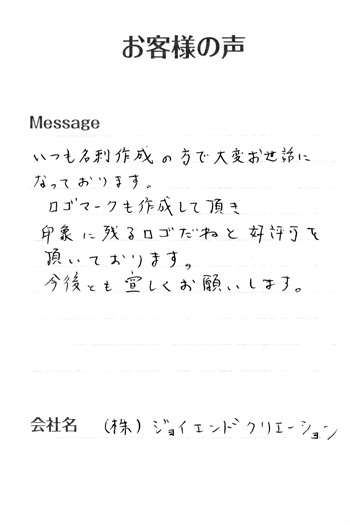 お客様の声
Message
いつも名刺作成の方で大変お世話に
なっております。
ロゴマークも作成して頂き
印象に残るロゴだねと好評可を
頂いております。
今後とも宜しくお願いします。
会社名 (株)ジョイエンドクリエーション